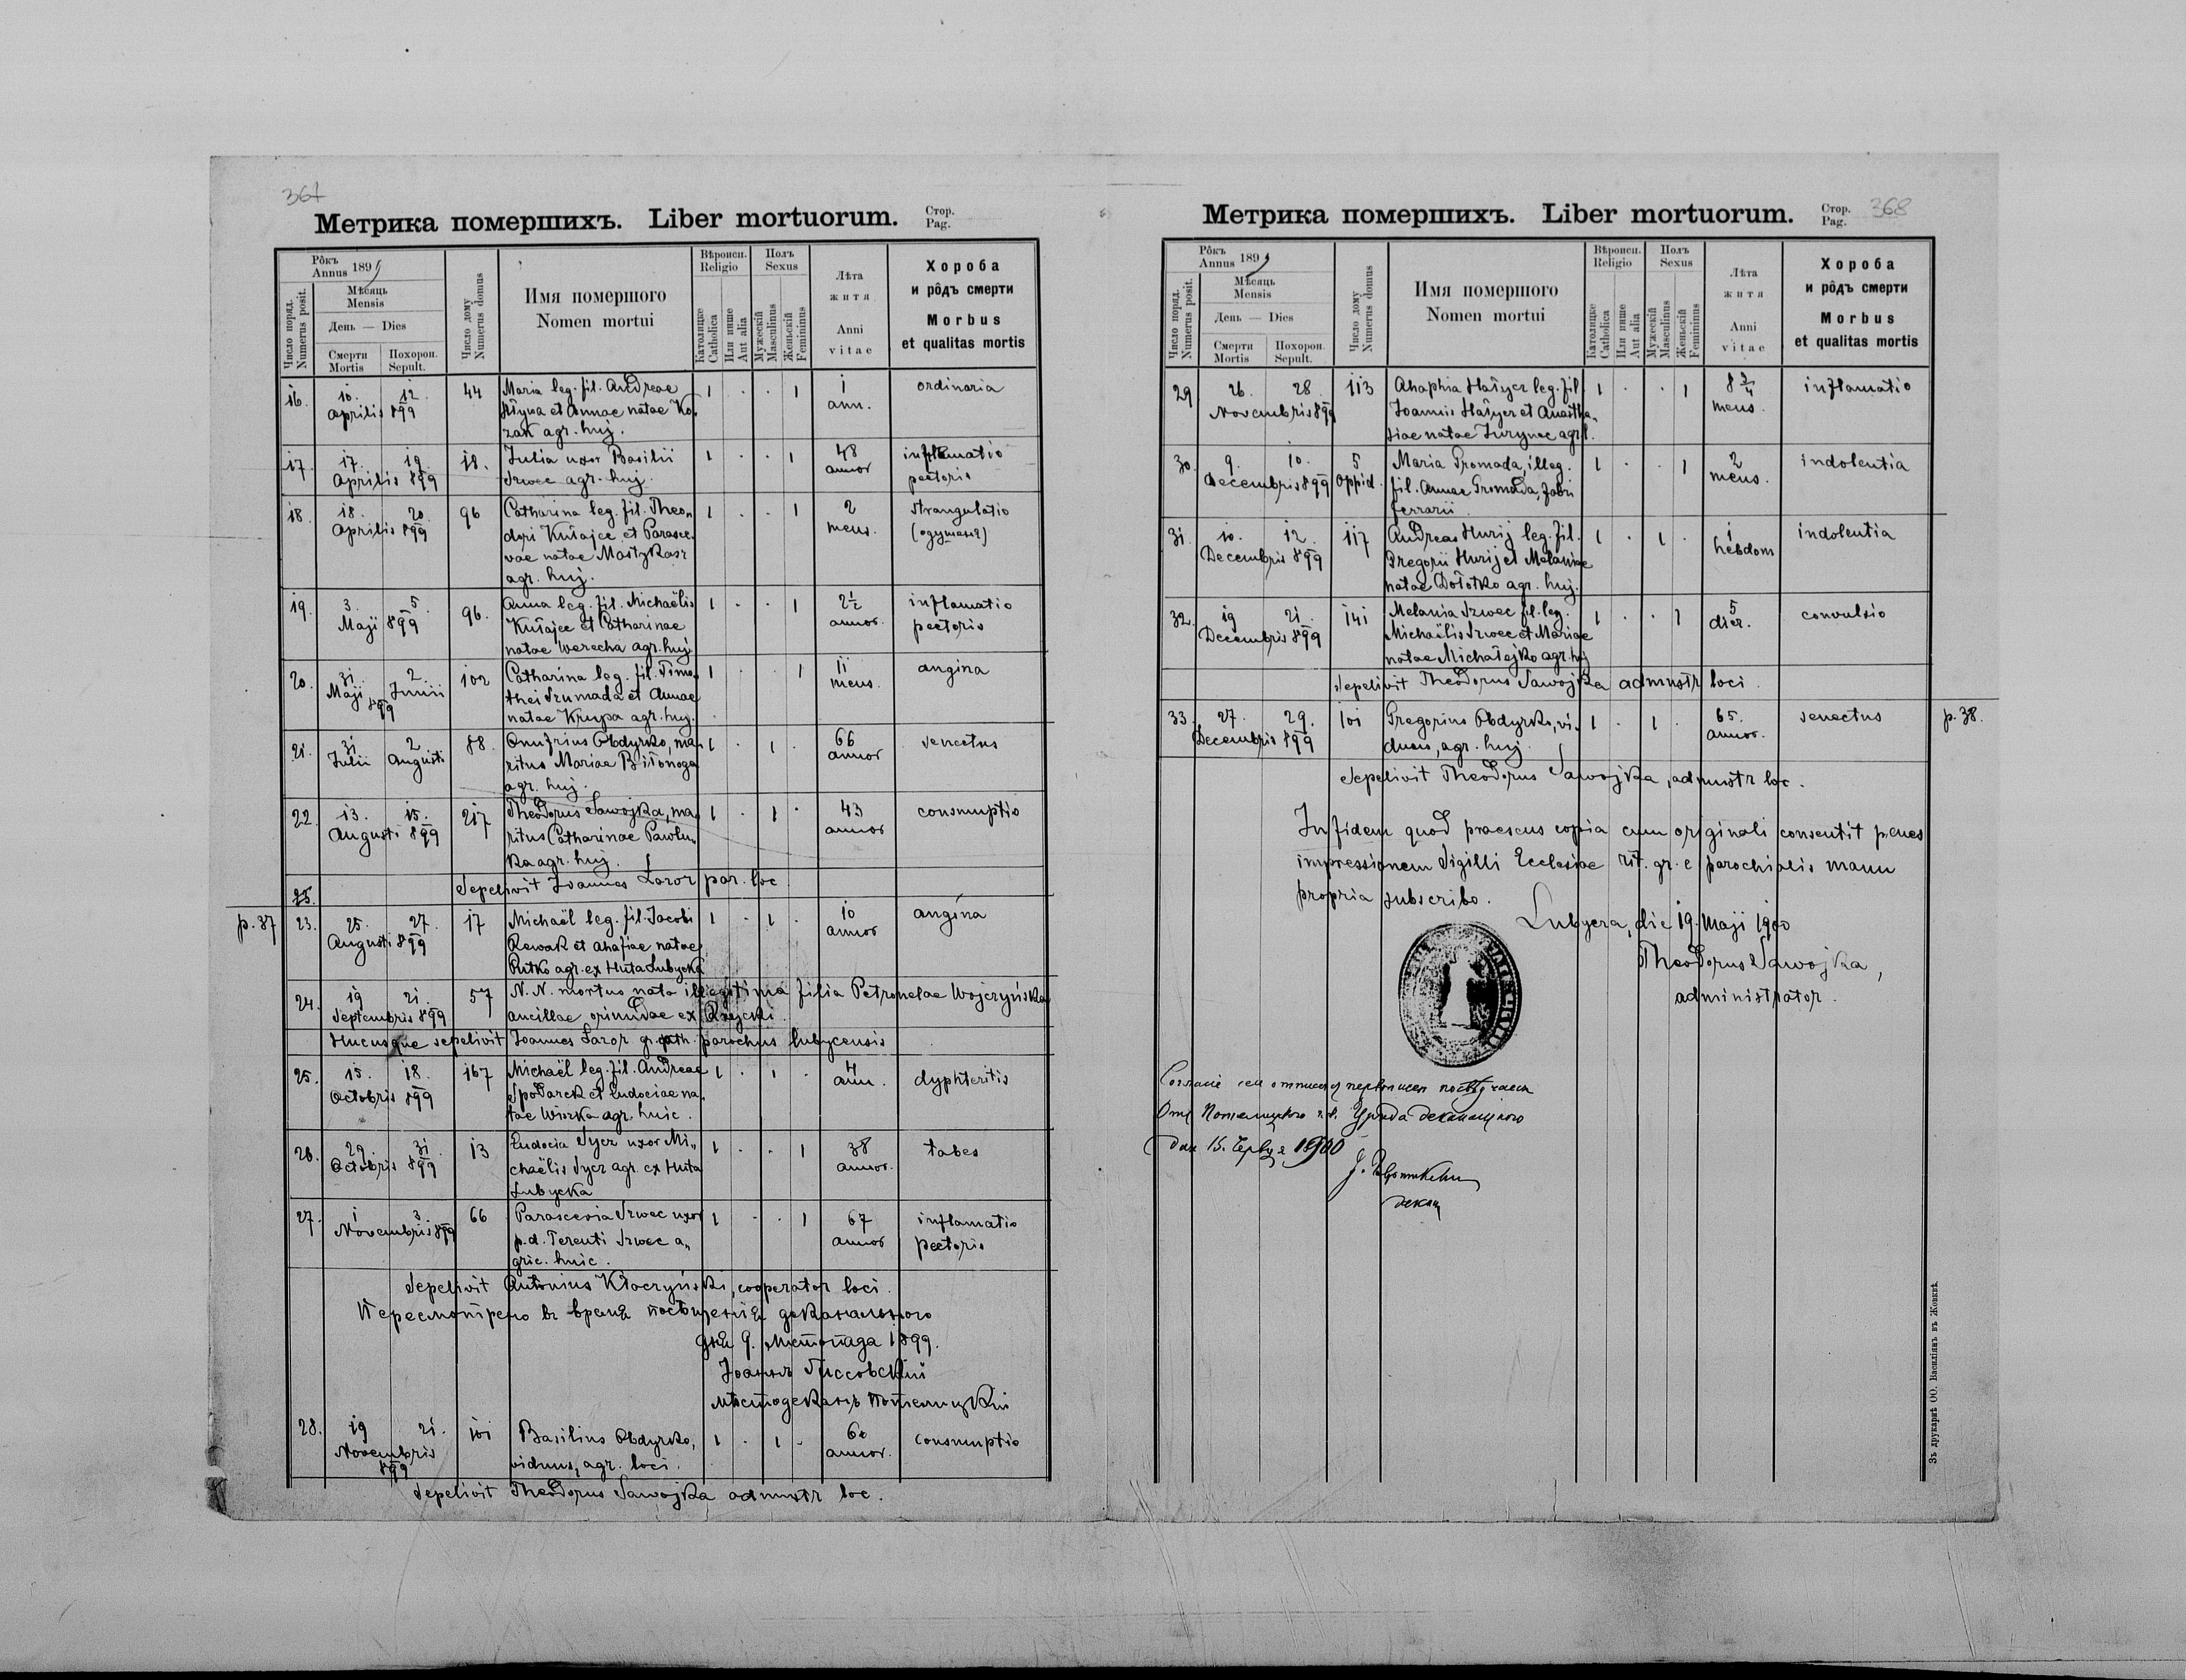 367
Метрика помершихъ. Liber mortuorum.
Стор.
Pag.
Рôкъ
Annus 1899
Мѣсяць
Mensis
День — Dies
Число поряд.
Numerus posit.
Смерти
Mortis
Похорон.
Sepult.
Число дому
Numerus domus
Имя помершого
Nomen mortui
Вѣроисп.
Religio
Католицке
Catholica
Или инше
Aut alia
Полъ
Sexus
Мужескій
Masculinus
Женьскій
Femininus
Лѣта
житя
Anni
vitae
Хороба
и рôдъ смерти
Morbus
et qualitas mortis
16. 10. 12. 44 Maria leg. fil. Andreae 1 . . 1 1 ordinaria
Aprilis 899 et Annae natae Ko„ ann.
zak agr. huj.
17. 17. 19. 18. Julia uxor Basilii 1 . . 1 48 inflamatio
Aprilis 899 Szwec agr. huj. annor pectoris
18. 18. 20. 96 Catharina leg. fil. Theo„ 1 . . 1 2 strangulatio
Aprilis 899 dori Kułajec et Parasce„ mens. (одушеня)
vae natae
agr. huj.
19. 3. 5. 96. Anna leg. fil. Michaëlis 1 . . 1 2½ inflamatio
Maji 899 Kułajec et Catharinae annor. pectoris
natae Werecha agr. huj.
20. 31. 2. 102 Catharina leg. fil. Timo„ 1 . . 1 11 angina
Maji 899 Junii thei Szumada et Annae mens.
natae Krupa agr. huj.
21. 31 2 88. Onufrius Obdyrko, ma„ 1 . 1 . 66 senectus
Julii Augusti ritus Mariae Biłonoga annor
agr. huj.
22. 13. 15. 217 Theodorus Sawojka, ma„ 1 . 1 . 43 consumptio
Augusti 899 ritus Catharinae Pawlu„ annor
ka agr. huj.
Sepelivit Joannes Łazor par. loc
p. 37 23. 25. 27. 17 Michaël leg. fil. Jacobi 1 . 1 . 10 angina
Augusti 899 Rewak et Ahafiae natae annor
Rutko agr. ex Huta Lubycka
24. 19 21. 57 N. N. mortuo nata illegitima filia Petronelae Wojczyńska
Septembris 899 ancillae oriundae ex Rzyczki.
Hucusque sepelivit Joannes Łazor gr. cath. parochus lubycensis
25. 15. 18. 167 Michaël leg. fil. Andreae 1 . 1 . 4 dyphteritis
Octobris 899 Spodarek et Eudociae na„ ann.
tae agr. huic.
26. 29. 31. 13 Eudocia Sycz uxor Mi„ 1 . . 1 38 tabes
Octobris 899 chaëlis Sycz agr. ex Huta annor.
Lubycka
27. 1 3. 66 Parascevia Szwec uxor 1 . . 1 67 inflamatio
Novembris 899 p. d. Terenti Szwec a„ annor pectoris
gric. huic.
Sepelivit Antonius Kłoczyński, cooperator loci.
Пересмотрено въ время посѣщенія деканального
дня 9. Листопада 1899.
Іоаннъ
мѣстодеканъ Потелицкій
28. 19 21. 101 Basilius Obdyrko, 1 . 1 . 60 consumptio
Novembris viduus, agr. loci. annor.
899
Sepelivit Theodorus Sawojka admnstr loc.
Метрика помершихъ. Liber mortuorum.
Стор.
Pag.
368
Рôкъ
Annus 1899
Мѣсяць
Mensis
День — Dies
Число поряд.
Numerus posit.
Смерти
Mortis
Похорон.
Sepult.
Число дому
Numerus domus
Имя помершого
Nomen mortui
Вѣроисп.
Religio
Католицке
Catholica
Или инше
Aut alia
Полъ
Sexus
Мужескій
Masculinus
Женьскій
Femininus
Лѣта
житя
Anni
vitae
Хороба
и рôдъ смерти
Morbus
et qualitas mortis
29 26. 28 113 Ahaphia Hałycz leg. fil. 1 . . 1 8 3/4 inflamatio
Novembris 899 Joannis Hałycz et Anastha„ mens.
siae natae Jurynec agr. l.
30. 9. 10. 5 Maria Gromada, illeg. 1 . . 1 2 indolentia
Decembris 899 oppid. fil. Annae Gromada, fabri mens.
ferrarii.
31. 10. 12. 117 Andreas Hurij leg. fil. 1 . 1 . 1 indolentia
Decembris 899 Gregorii Hurij et Melaniae hebdom
natae Dołotko agr. huj.
32. 19 21. 141 Melania Szwec fil. leg. 1 . . 1 5 convulsio
Decembris 899 Michaëlis Szwec et Mariae dier.
natae Michałejko agr. huj
Sepelivit Theodorus Sawojka admnstr loci.
33. 27. 29. 101 Gregorius Obdyrko, vi„ 1 . 1 . 65. senectus p. 38.
Decembris 899 duus, agr. huj. annor.
Sepelivit Theodorus Sawojka, admnstr loc.
In fidem quod praesens copia cum originali consentit penes
impressionem Sigilli Ecclesiae rit. gr. c parochialis manu
propria subscribo.
Lubycza, die 19. Maji 1900
Theodorus Sawojka,
administrator.
Согласіе сеи отписи съ первописеи посвѣдчаеся
Отъ Потелицкого г. к. Уряда деканального
дня 15. Червця 1900
декан
Зъ друкарнѣ ОО. Василіянъ въ Жовквѣ.